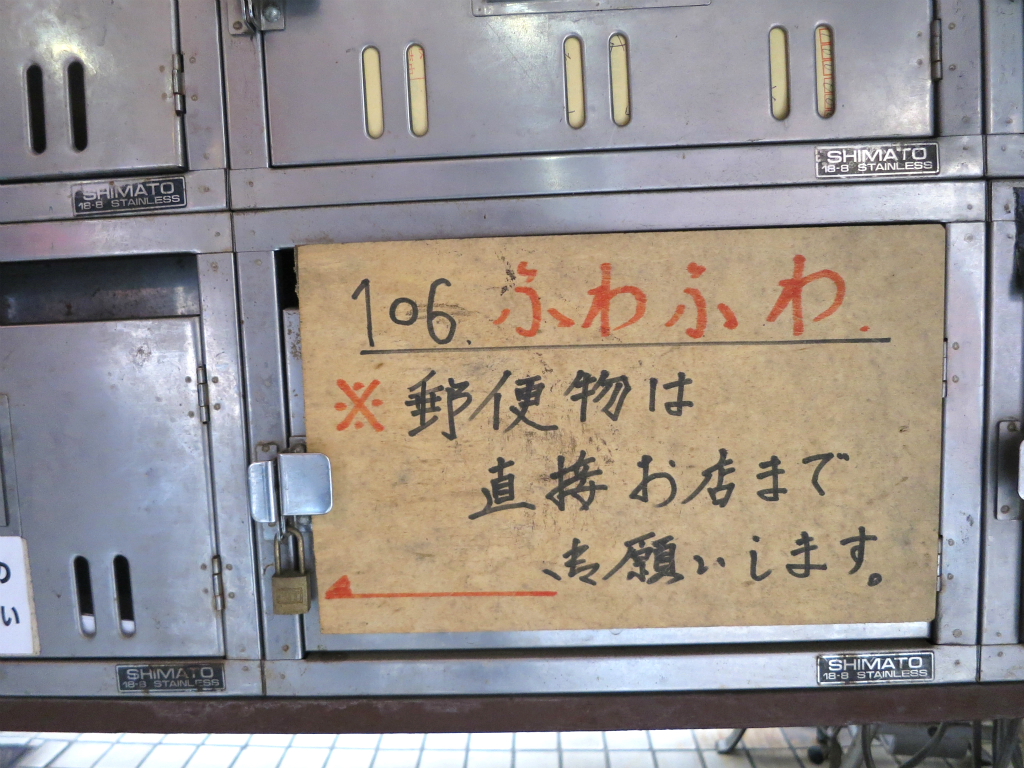 SHIMATO
18-8 STAINLESS
SHIMATO
18-8 STAINLESS
106. ふわふわ.
※郵便物は
直接お店まで
お願いします。
の
い
SHIMATO
18-8 STAINLESS
SHIMATO
18-8 STAINLESS